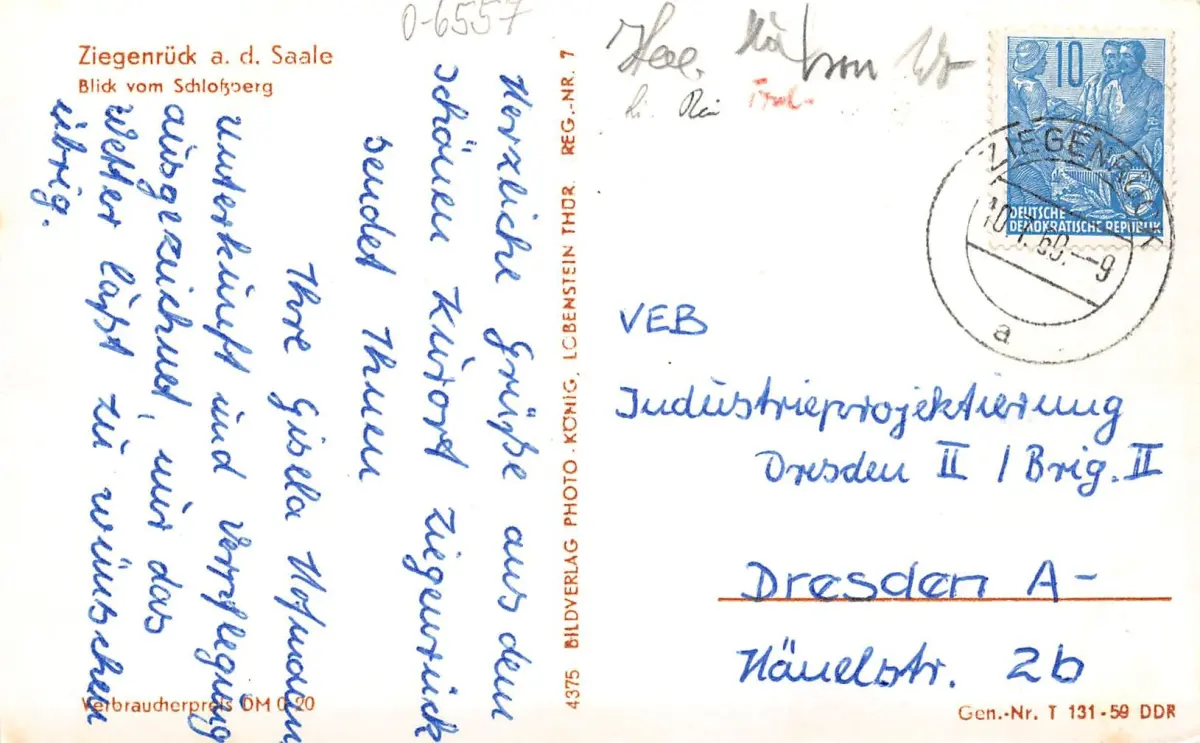 0-6557
Ziegenrück a. d. Saale
Blick vom Schloßberg
Herzliche Grüße aus dem
schönen Kurort Ziegenrück
sendet Ihnen
Ihre Gisela Hofmann
Unterkunft und Verpflegung
ausgezeichnet, nur das
Wetter läßt zu wünschen
übrig.
Verbraucherpreis DM 0,20
4375 BILDVERLAG PHOTO-KÖNIG, LOBENSTEIN THÜR. REG.-NR. 7
10
DEUTSCHE
DEMOKRATISCHE REPUBLIK
5
ZIEGENRÜCK
10.7.60.-9
a
VEB
Industrieprojektierung
Dresden II / Brig. II
Dresden A-
Hänelstr. 2b
Gen.-Nr. T 131-59 DDR